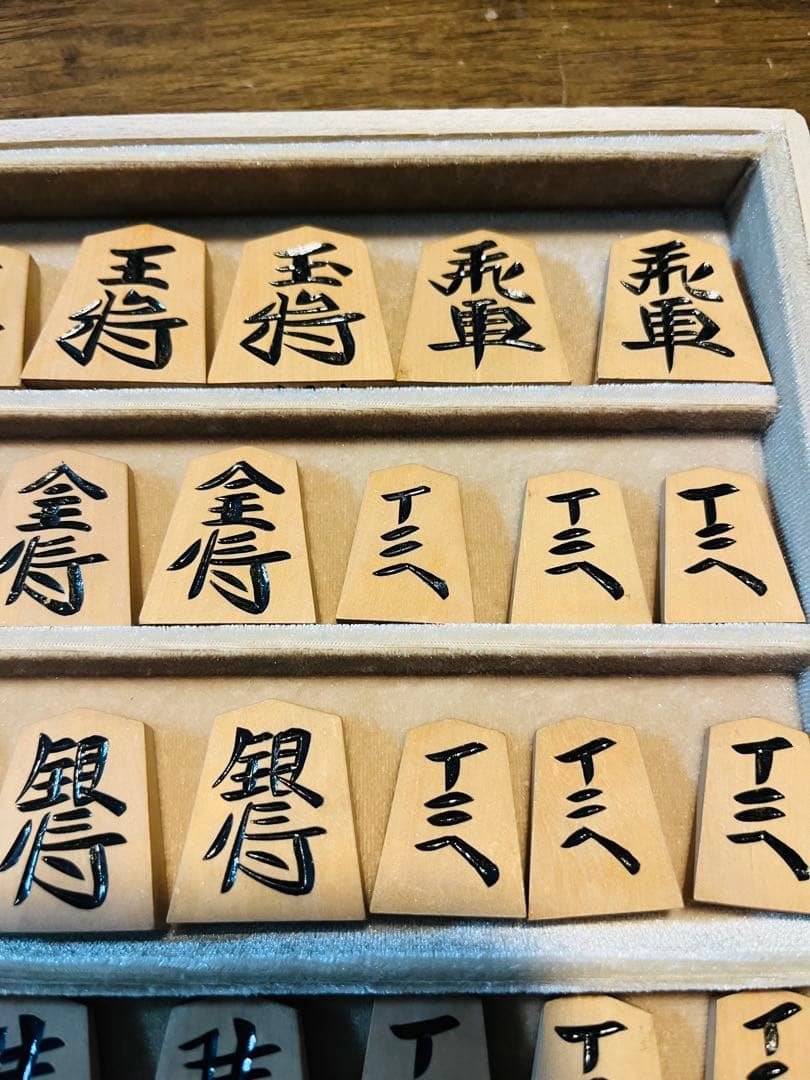 王将 玉将 飛車 飛車
金将 金将 歩兵 歩兵 歩兵
銀将 銀将 歩兵 歩兵 歩兵